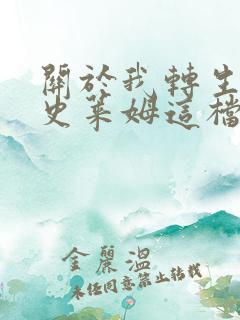 關於我轉生
史萊姆這檔
金麗溫
未經同意禁止轉載